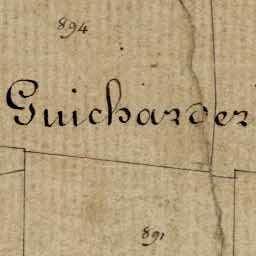 894
Guicharder
891